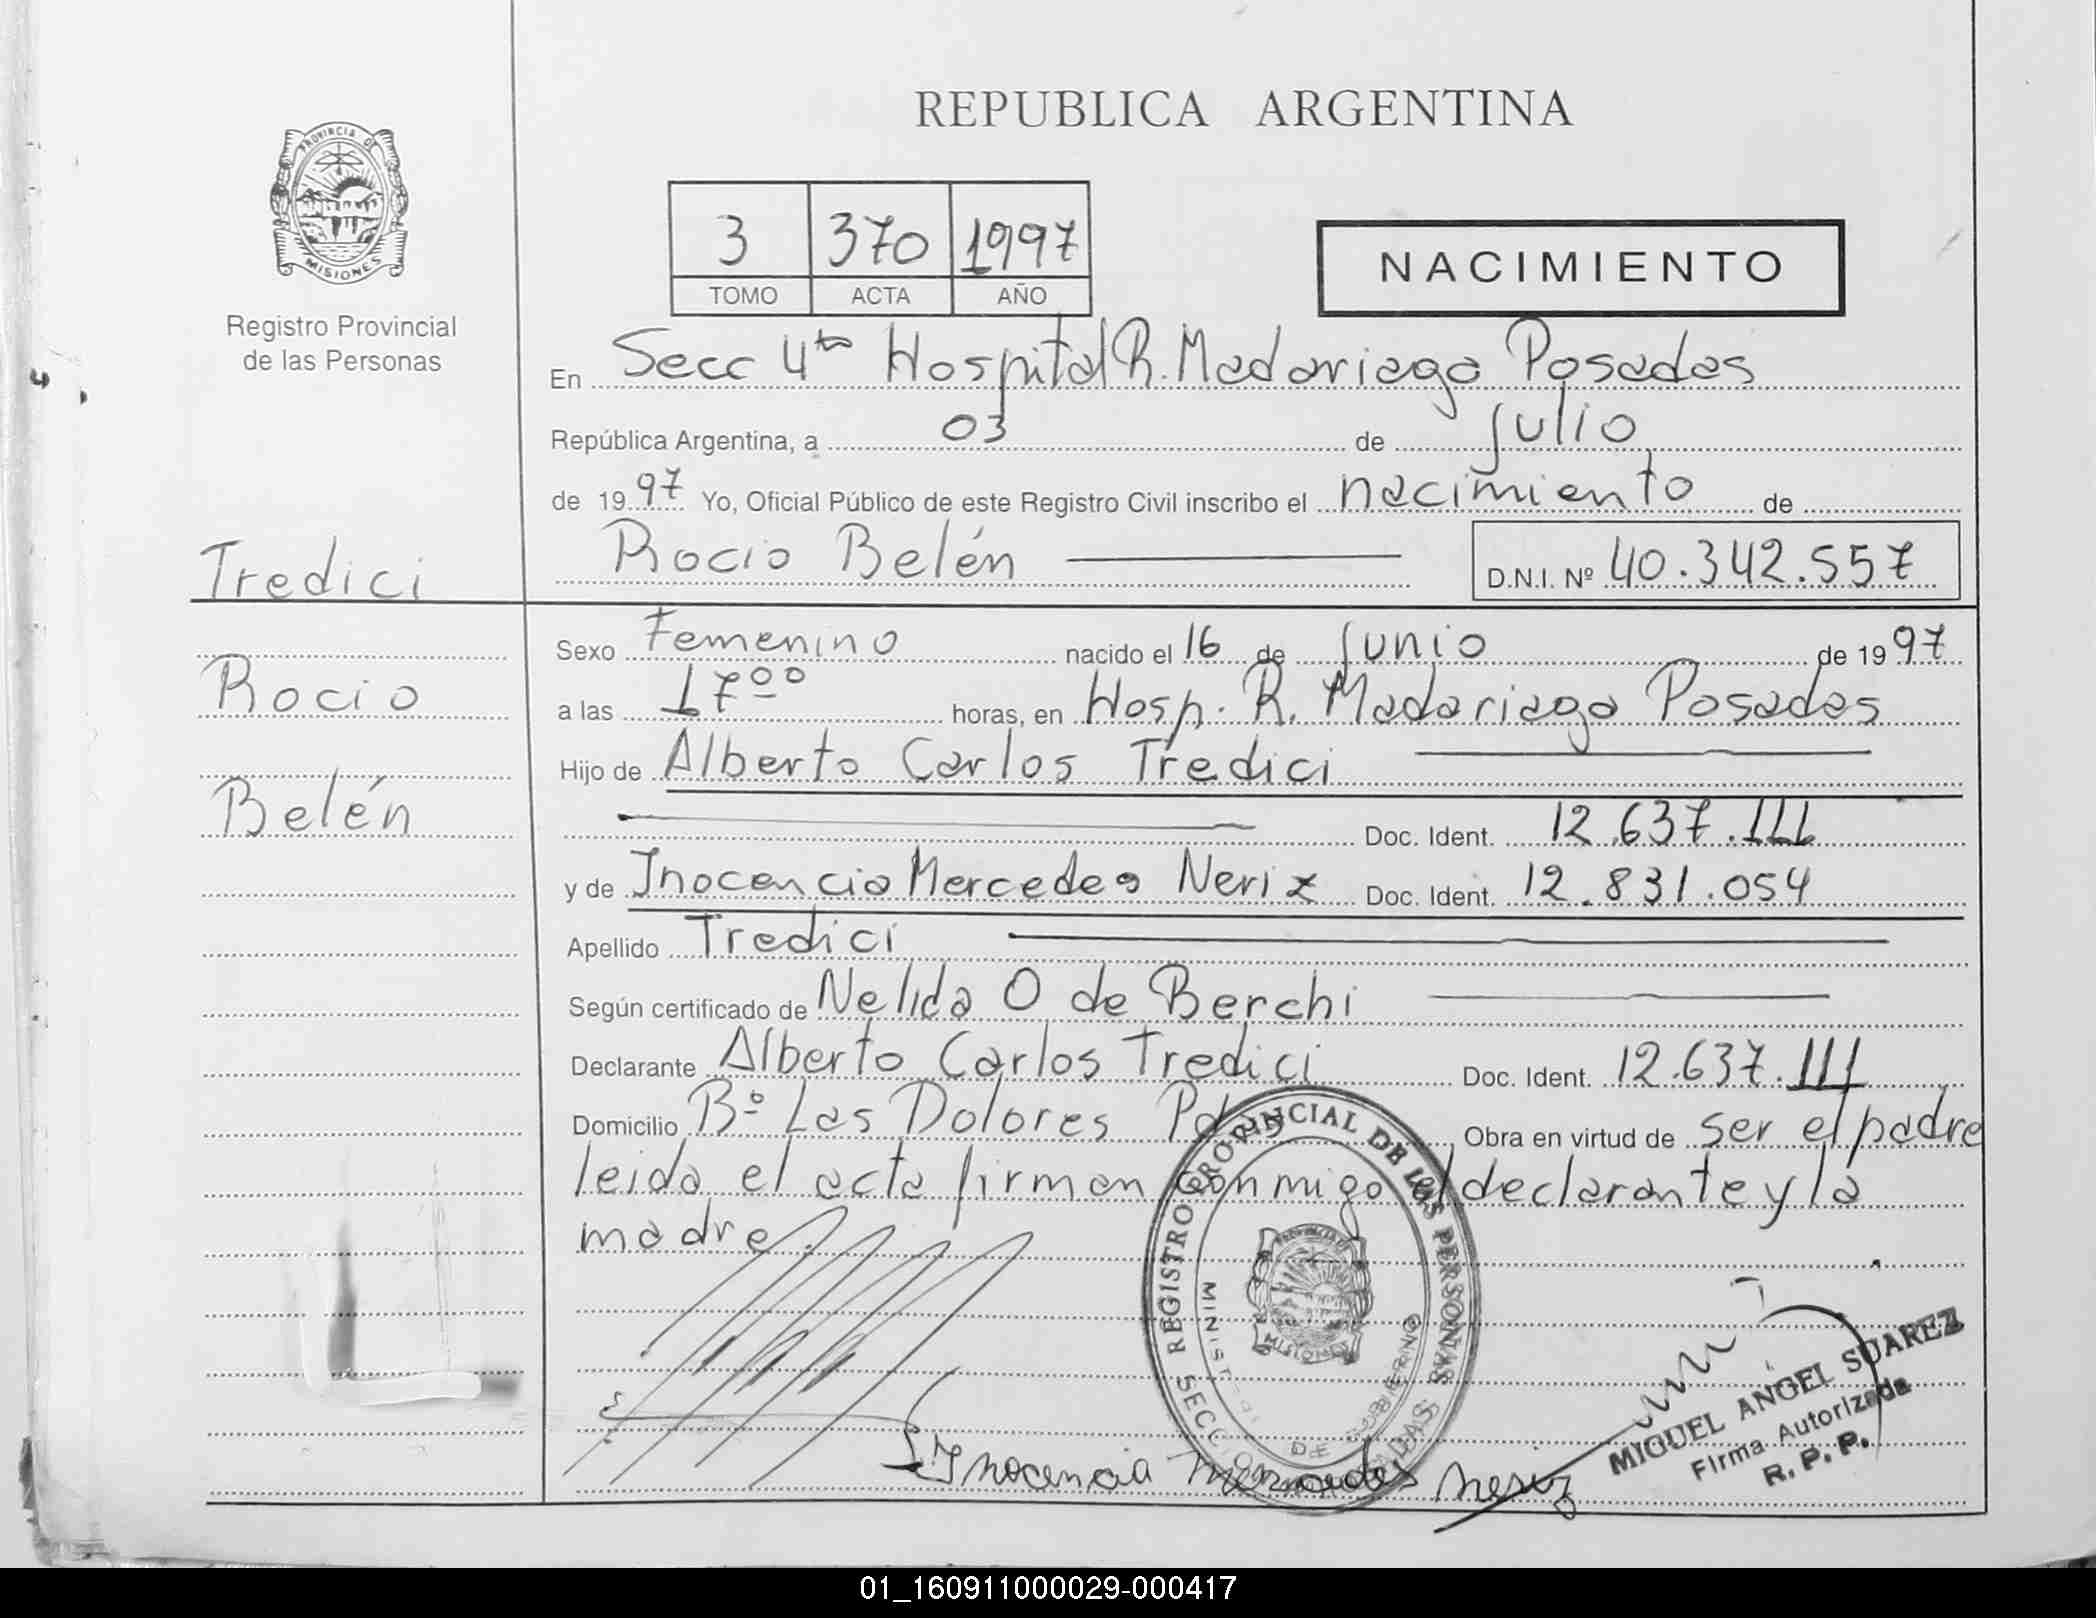 REPUBLICA ARGENTINA
PROVINCIA DE
MISIONES
Registro Provincial
de las Personas
3 370 1997
TOMO ACTA AÑO
NACIMIENTO
En Secc 4ta Hospital R. Madariaga Posadas
República Argentina, a 03 de Julio
de 1997 Yo, Oficial Público de este Registro Civil inscribo el nacimiento de
Tredici
Rocio Belén
D.N.I. Nº 40.342.557
Rocio
Belén
Sexo Femenino nacido el 16 de Junio de 1997
a las 17⁰⁰ horas, en Hosp. R. Madariaga Posadas
Hijo de Alberto Carlos Tredici
Doc. Ident. 12.637.111
y de Inocencia Mercedes Neriz Doc. Ident. 12.831.054
Apellido Tredici
Según certificado de Nelida O de Berchi
Declarante Alberto Carlos Tredici Doc. Ident. 12.637.111
Domicilio Bº Las Dolores Pdas Obra en virtud de ser el padre
leida el acta firman conmigo el declarante y la
madre
REGISTRO PROVINCIAL DE LAS PERSONAS
DE GOBIERNO
MISIONES
Inocencia Mercedes Neriz
MIGUEL ANGEL SUAREZ
Firma Autorizada
R. P. P.
01_160911000029-000417